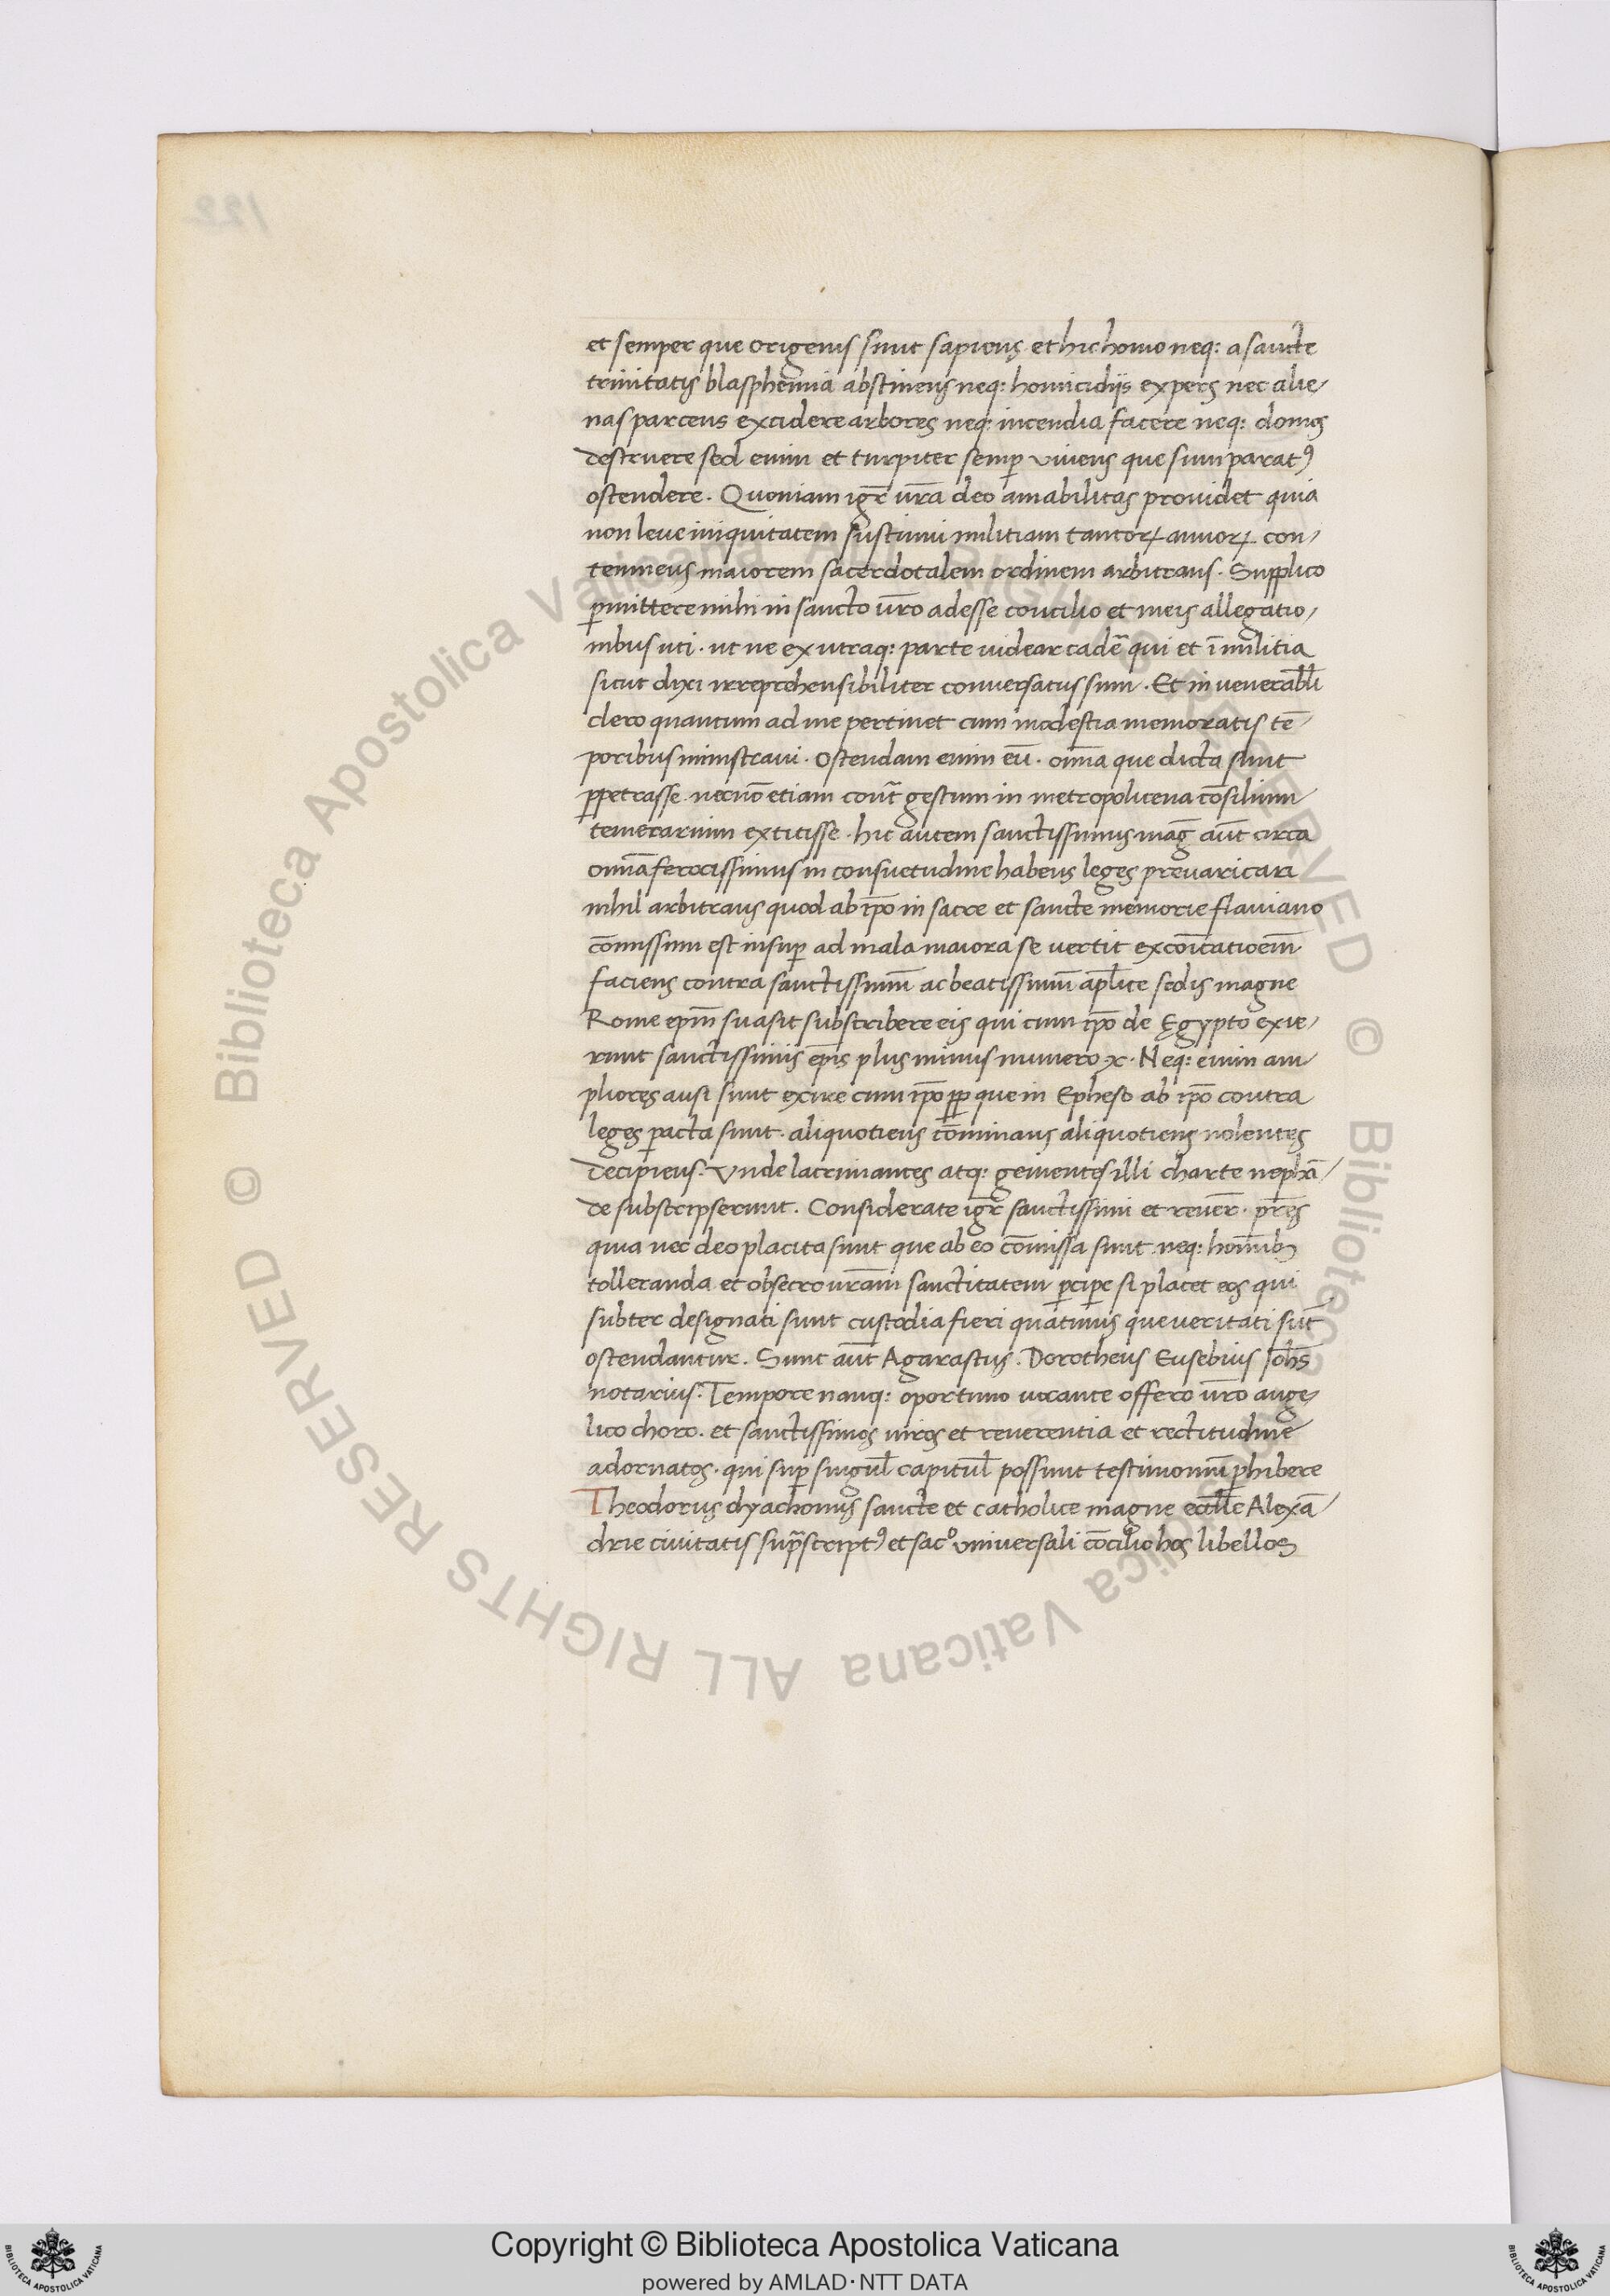 et semper que origenis sunt sapiens et hic homo neq: a sancte
trinitatis blasphemia abstinens neq: homicidijs expers nec alie-
nas parcens excidere arbores neq: incendia facere neq: domos
destruere sed enim et turpiter semp̲ viuens que sum paratꝰ
ostendere. Quoniam igr̃ vr̃a deo amabilitas prouidet quia
non leue iniquitatem sustinui militiam tantoꝝ annoꝝ con-
temnens maiorem sacerdotalem ordinem arbitrans. Supplico
ꝑmittere mihi in sancto vr̃o adesse concilio et meis allegatio-
nibus uti. ut ne ex utraq: parte videar cadẽ qui et ĩ militia
sicut dixi irreprehensibiliter conuersatus sum. Et in venerabl̃i
clero quantum ad me pertinet cum modestia memoratis tẽ-
poribus ministraui. Ostendam enim eũ. om̃ia que dicta sunt
ꝑpetrasse. necnõ etiam cont̃ gestum in metropolitena cõsilium
temerarium extitisse. hic autem sanctissimus mag̃ aũt circa
om̃ia ferocissimus in consuetudine habens leges preuaricari
nihil arbitrans quod ab ip̃o in sacre et sancte memorie flauiano
cõmissum est insuꝑ ad mala maiora se vertit excoĩcatioem̃
faciens contra sanctissimũ ac beatissimũ ap̃lice sedis magne
Rome epm̃ suasit subscribere eis qui cum ip̃o de Ęgypto exie-
runt sanctissimis ep̃is plus minus numero x. Neq: enim am-
pliores ausi sunt exire cum ip̃o ꝓp̲ que in Epheso ab ip̃o contra
leges ꝑacta sunt. aliquotiens cõminans aliquotiens nolentes
decipiens. Vnde lacrimantes atq: gementes illi charte nephã-
de subscripserunt. Considerate igr̃ sanctissimi et reuer̃. pr̃es
quia nec deo placita sunt que ab eo cõmissa sunt. neq: homĩbꝫ
tolleranda et obsecro vr̃am sanctitatem ꝑciꝑe si placet eos qui
subter designati sunt custodia fieri quatinus que veritati sũt
ostendantur. Sunt aũt Agarastus. Dorotheus Eusebius Joh̃s
notarius. Tempore nanq: oportuno vocante offero vr̃o ange-
lico choro. et sanctissimos viros et reuerentia et rectitudine
adornatos. qui suꝑ singul̃ capitul̃ possunt testimoniũ ꝑhibere
Theodorus dyachonus sancte et catholice magne eccl̃ie Alexã-
drie ciuitatis sup̃scriptꝰ et sacº vniuersali cõcilio hos libellos
© Biblioteca Apostolica Vaticana ALL RIGHTS RESERVED © Biblioteca Apostolica Vaticana ALL RIGHTS RESERVED
Copyright © Biblioteca Apostolica Vaticana
powered by AMLAD·NTT DATA